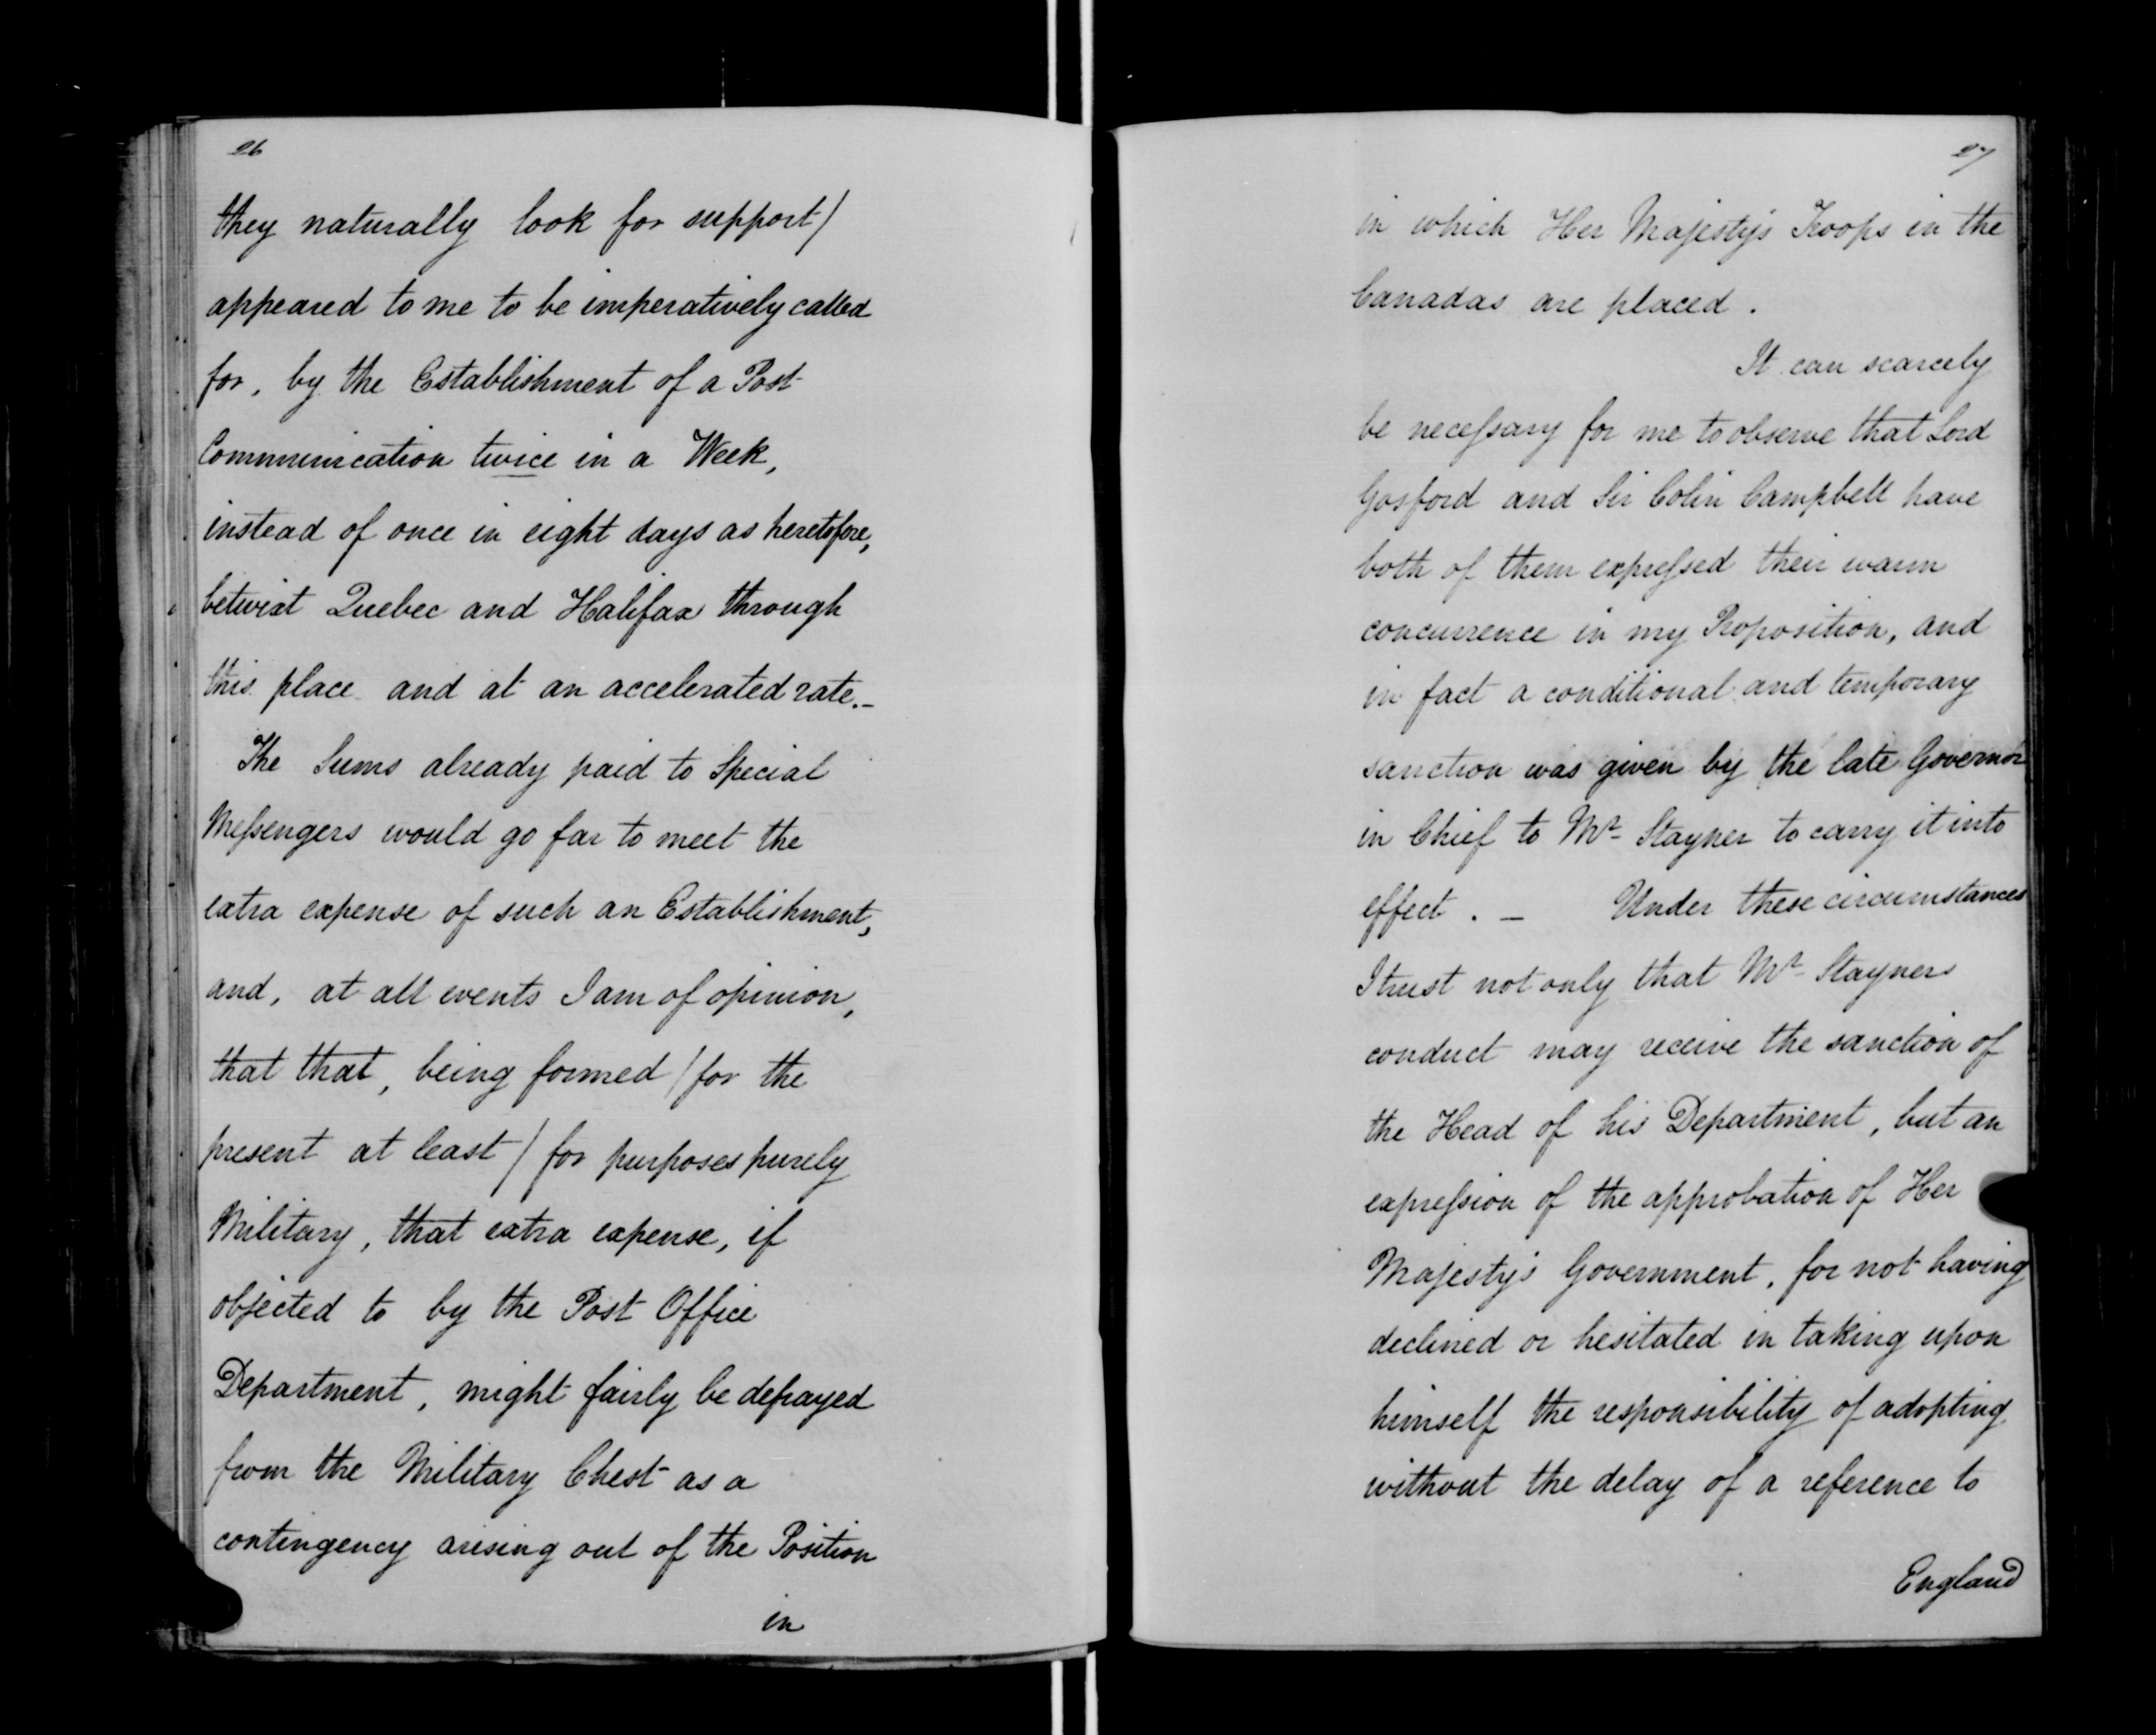 26
they naturally look for support)
appeared to me to be imperatively called
for, by the Establishment of a Post
Communication twice in a Week,
instead of once in eight days as heretofore,
betwixt Quebec and Halifax through
this place and at an accelerated rate._
The Sums already paid to Special
Messengers would go far to meet the
extra expense of such an Establishment,
and, at all events I am of opinion,
that that, being formed (for the
present at least) for purposes purely
Military, that extra expense, if
objected to by the Post Office
Department, might fairly be defrayed
from the Military Chest as a
contingency arising out of the Position
in
27
in which Her Majesty's Troops in the
Canadas are placed.
It can scarcely
be necessary for me to observe that Lord
Gosford and Sir Colin Campbell have
both of them expressed their warm
concurrence in my Proposition, and
in fact a conditional and temporary
sanction was given by the late Governor
in Chief to Mr Stayner to carry it into
effect. _ Under these circumstances
I trust not only that Mr Stayners
conduct may receive the sanction of
the Head of his Department, but an
expression of the approbation of Her
Majesty's Government, for not having
declined or hesitated in taking upon
himself the responsibility of adopting
without the delay of a reference to
England